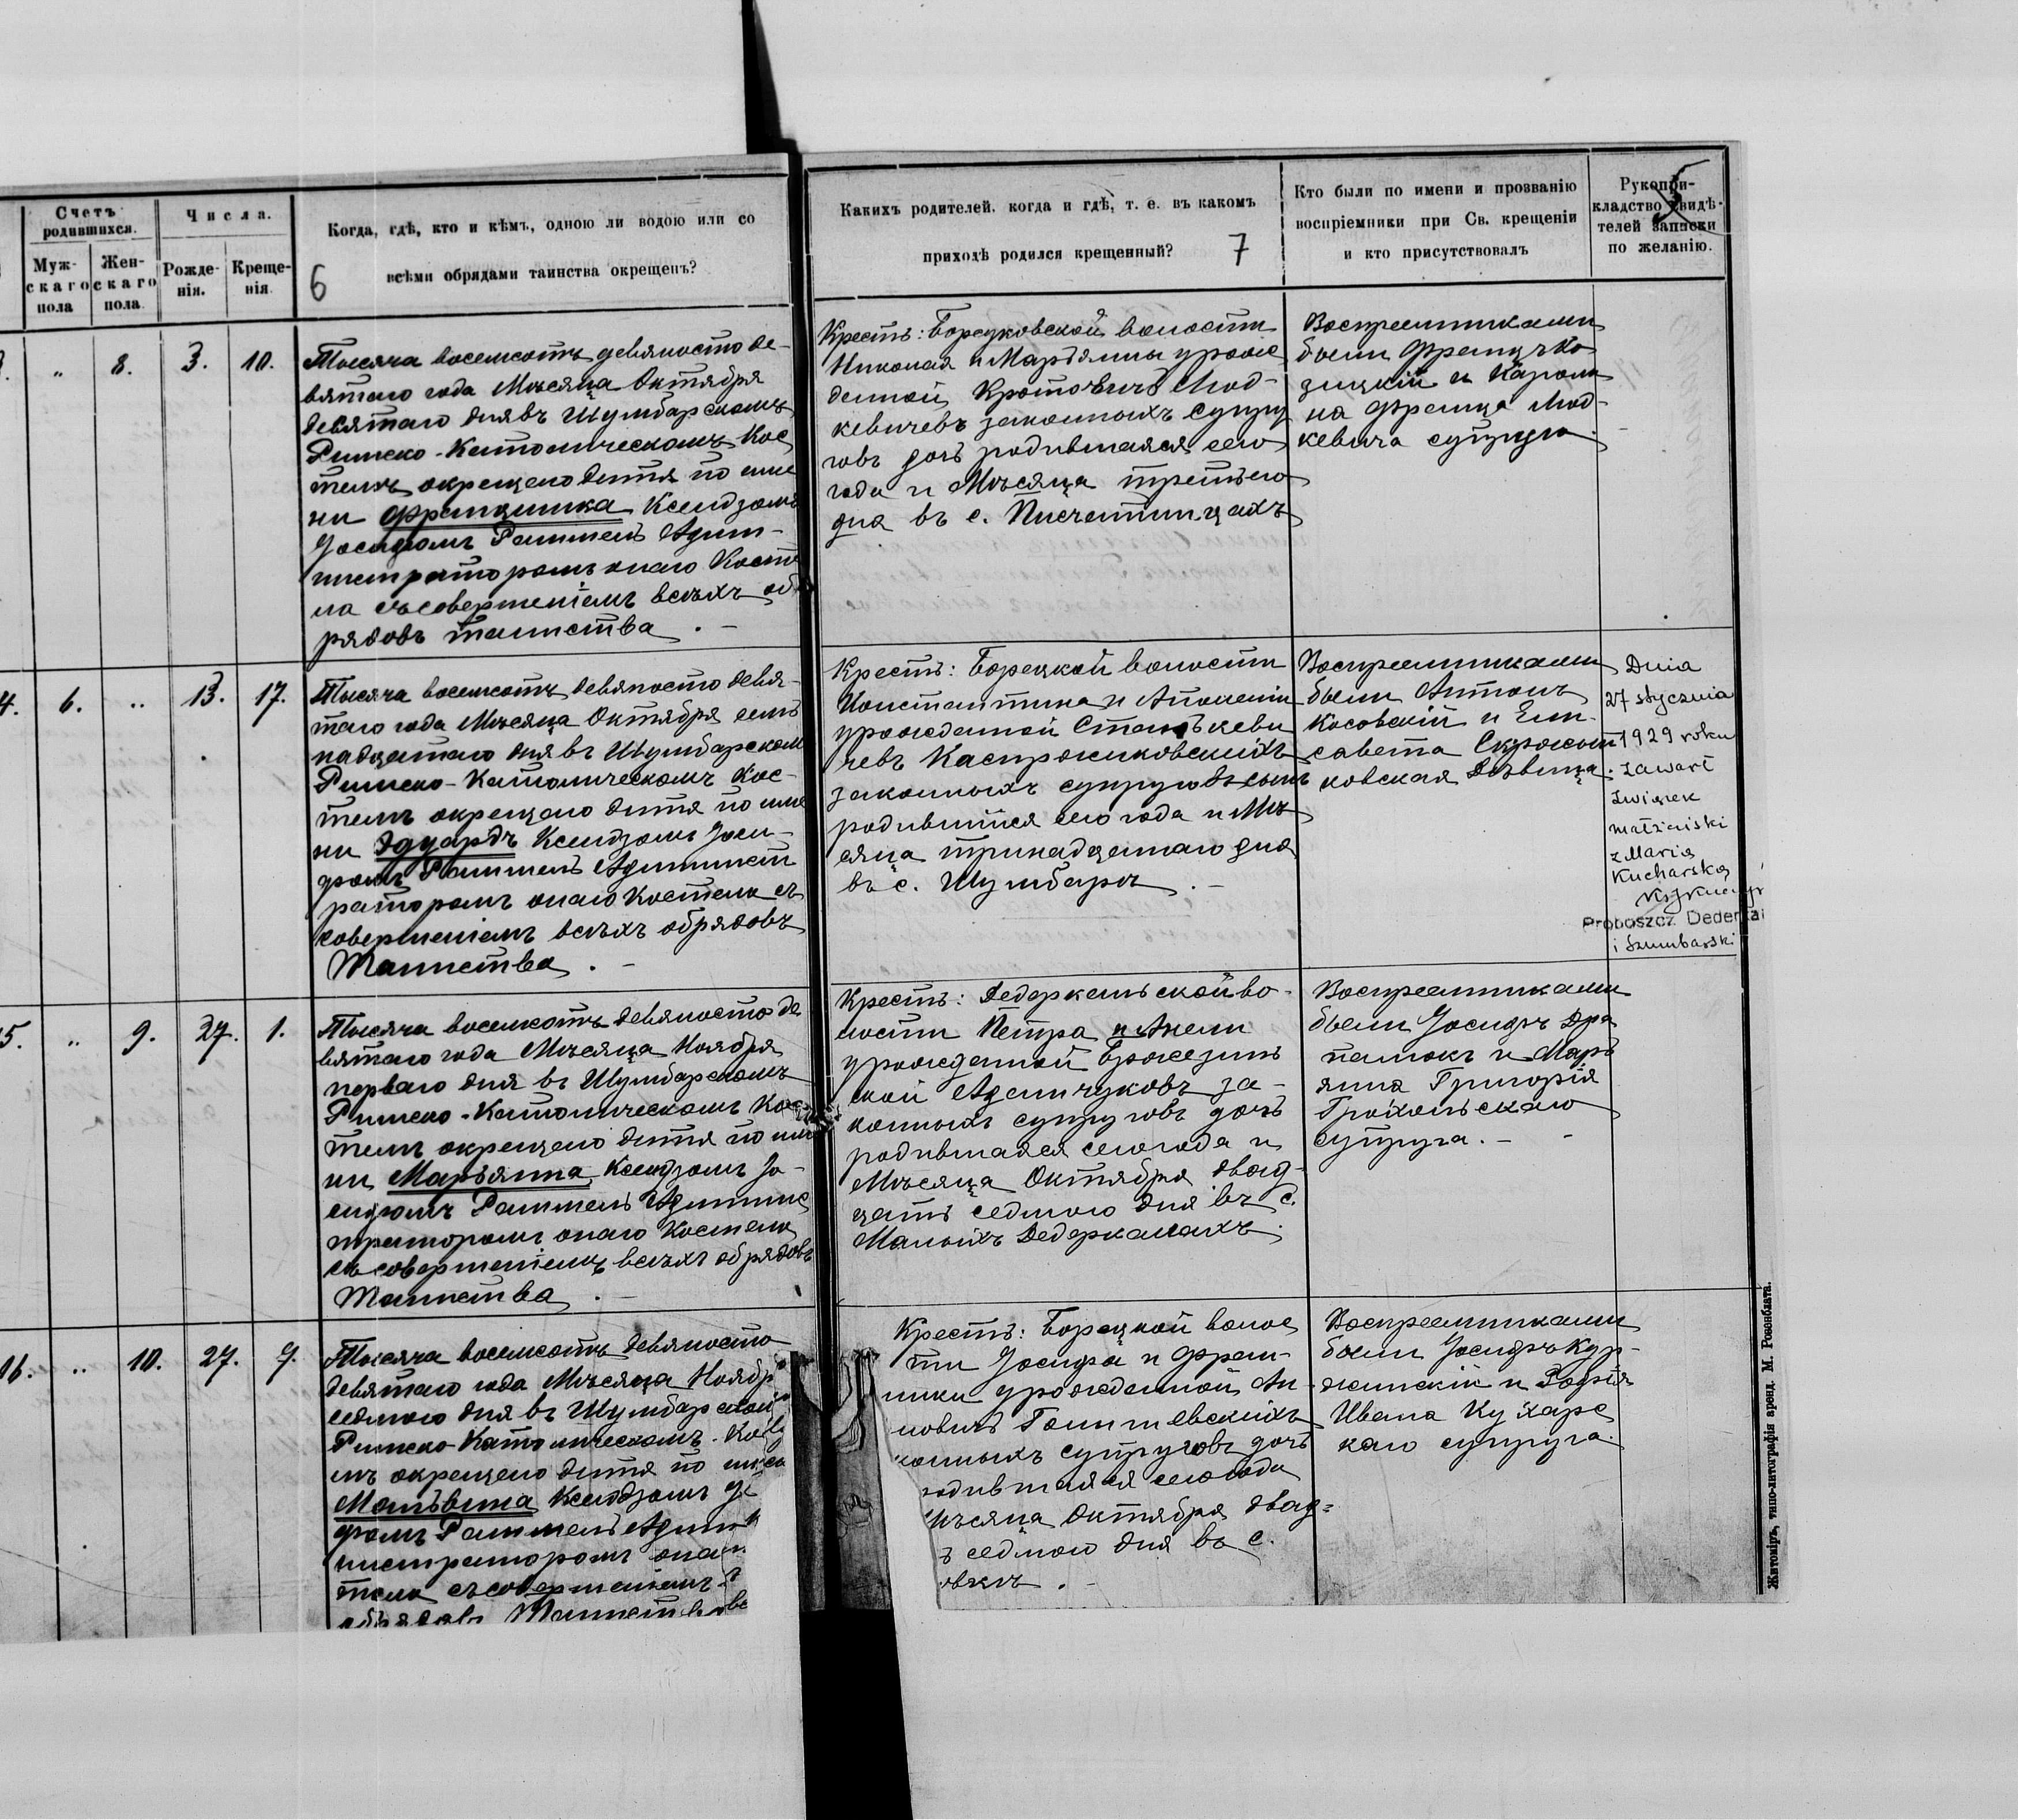 Счетъ
родившихся.
Числа.
Муж-
скаго
пола
Жен-
скаго
пола
Рожде-
нія.
Креще-
нія
Когда, гдѣ, кто и кѣмъ, одною ли водою или со
всѣми обрядами таинства окрещенъ?
6
Каких‌ъ родителей, когда и гдѣ, т. е. въ какомъ
приходѣ родился крещенный?
7
Кто были по имени и прозванію
воспріемники при Св. крещеніи
и кто присутствовалъ
Рукопри-
кладство свидѣ-
телей записки
по желанію.
5
„ 8. 3. 10.
Тысяча восемсотъ девяносто де-
вятаго года Мѣсяца Октября
девятаго дня въ Шумбарскомъ
Римско-Католическомъ Кос
телѣ окрещено дитя по име
ни Францишка Ксендзомъ
Іосифомъ Раппель Адми-
нистраторомъ онаго Косте
ла съ совершеніемъ всѣхъ об
рядовъ таинства . –
Крестъ: Борсуковской волости
Николая и Марьянны урож
денной Кротовичъ Мод-
кевичевъ законныхъ супру
говъ дочь родившаяся сего
года и Мѣсяца третьего
дня въ с. Писчатинцахъ
Воспреемниками
были Францъ Ко
зицкій и Кароли
на Франца Мод-
кевича супруга.
4. 6. „ 13. 17.
Тысяча восемсотъ девяносто девя-
таго года Мѣсяца Октября семь
надцатаго дня въ Шумбарском
Римско-Католическомъ Кос-
телѣ окрещено дитя по име
ни Эдуардъ Ксендзомъ Іоси-
фомъ Раппель Админист
раторомъ онаго Костела съ
совершеніемъ всѣхъ обрядовъ
Таинства . –
Крестъ: Борецкой волости
Константина и Аполоніи
урожденной Станькеви
чевъ Каспржиковскихъ
законныхъ супруговъ сынъ
родившійся сего года и Мѣ
сяца тринадцатаго дня
въ с. Шумбарѣ . –
Воспреемниками
были Антонъ
Косовскій и Ели-
савета Скржит
ковская Дѣвица.
Dnia
27 stycznia
1929 roku
zawarł
związek
małżeński
z Marią
Kucharską
Proboszcz Dederkal
i Szumbarski
5. „ 9. 27. 1.
Тысяча восемсотъ девяносто де
вятаго года Мѣсяца Ноября
перваго дня въ Шумбарскомъ
Римско-Католическомъ Кос
телѣ окрещено дитя по име
ни Марьянна Ксендзомъ Іо-
сифомъ Раппель Админис
траторомъ онаго Костела
съ совершеніемъ всѣхъ обрядовъ
Таинства . –
Крестъ: Дедеркальской во-
лости Петра и Анели
урожденной Бржезинь
ской Адамчуковъ за-
конныхъ супруговъ дочь
родившаяся сего года и
Мѣсяца Октября двад-
цать седмого дня въ с.
Малыхъ Дедеркалахъ.
Воспреемниками
были Іосифъ Дра
палюкъ и Марь
янна Григорія
Грохольскаго
супруга. –
16. „ 10. 27. 7.
Тысяча восемсотъ девяносто
девятаго года Мѣсяца Ноябр
седмого дня въ Шумбарской
Римско-Католическомъ Ко
лѣ окрещено дитя по
Мальвина Ксендзомъ
фомъ Раппель Адми
нистраторомъ она
тела съ совершеніемъ
обрядовъ Таинства
Крестъ: Борецкой волос
ти Іосифа и Фран-
шки урожденной Ян
новичъ Голишевскихъ
конныхъ супруговъ дочь
родившаяся сего года
Мѣсяца Октября двад=
ь седмого дня въ с.
овкахъ . –
Воспреемниками
были Іосифъ Кур-
жинскій и Зофія
Ивана Кухарс
каго супруга.
Житоміръ, типо-литографія аренд. М. Розенблата.